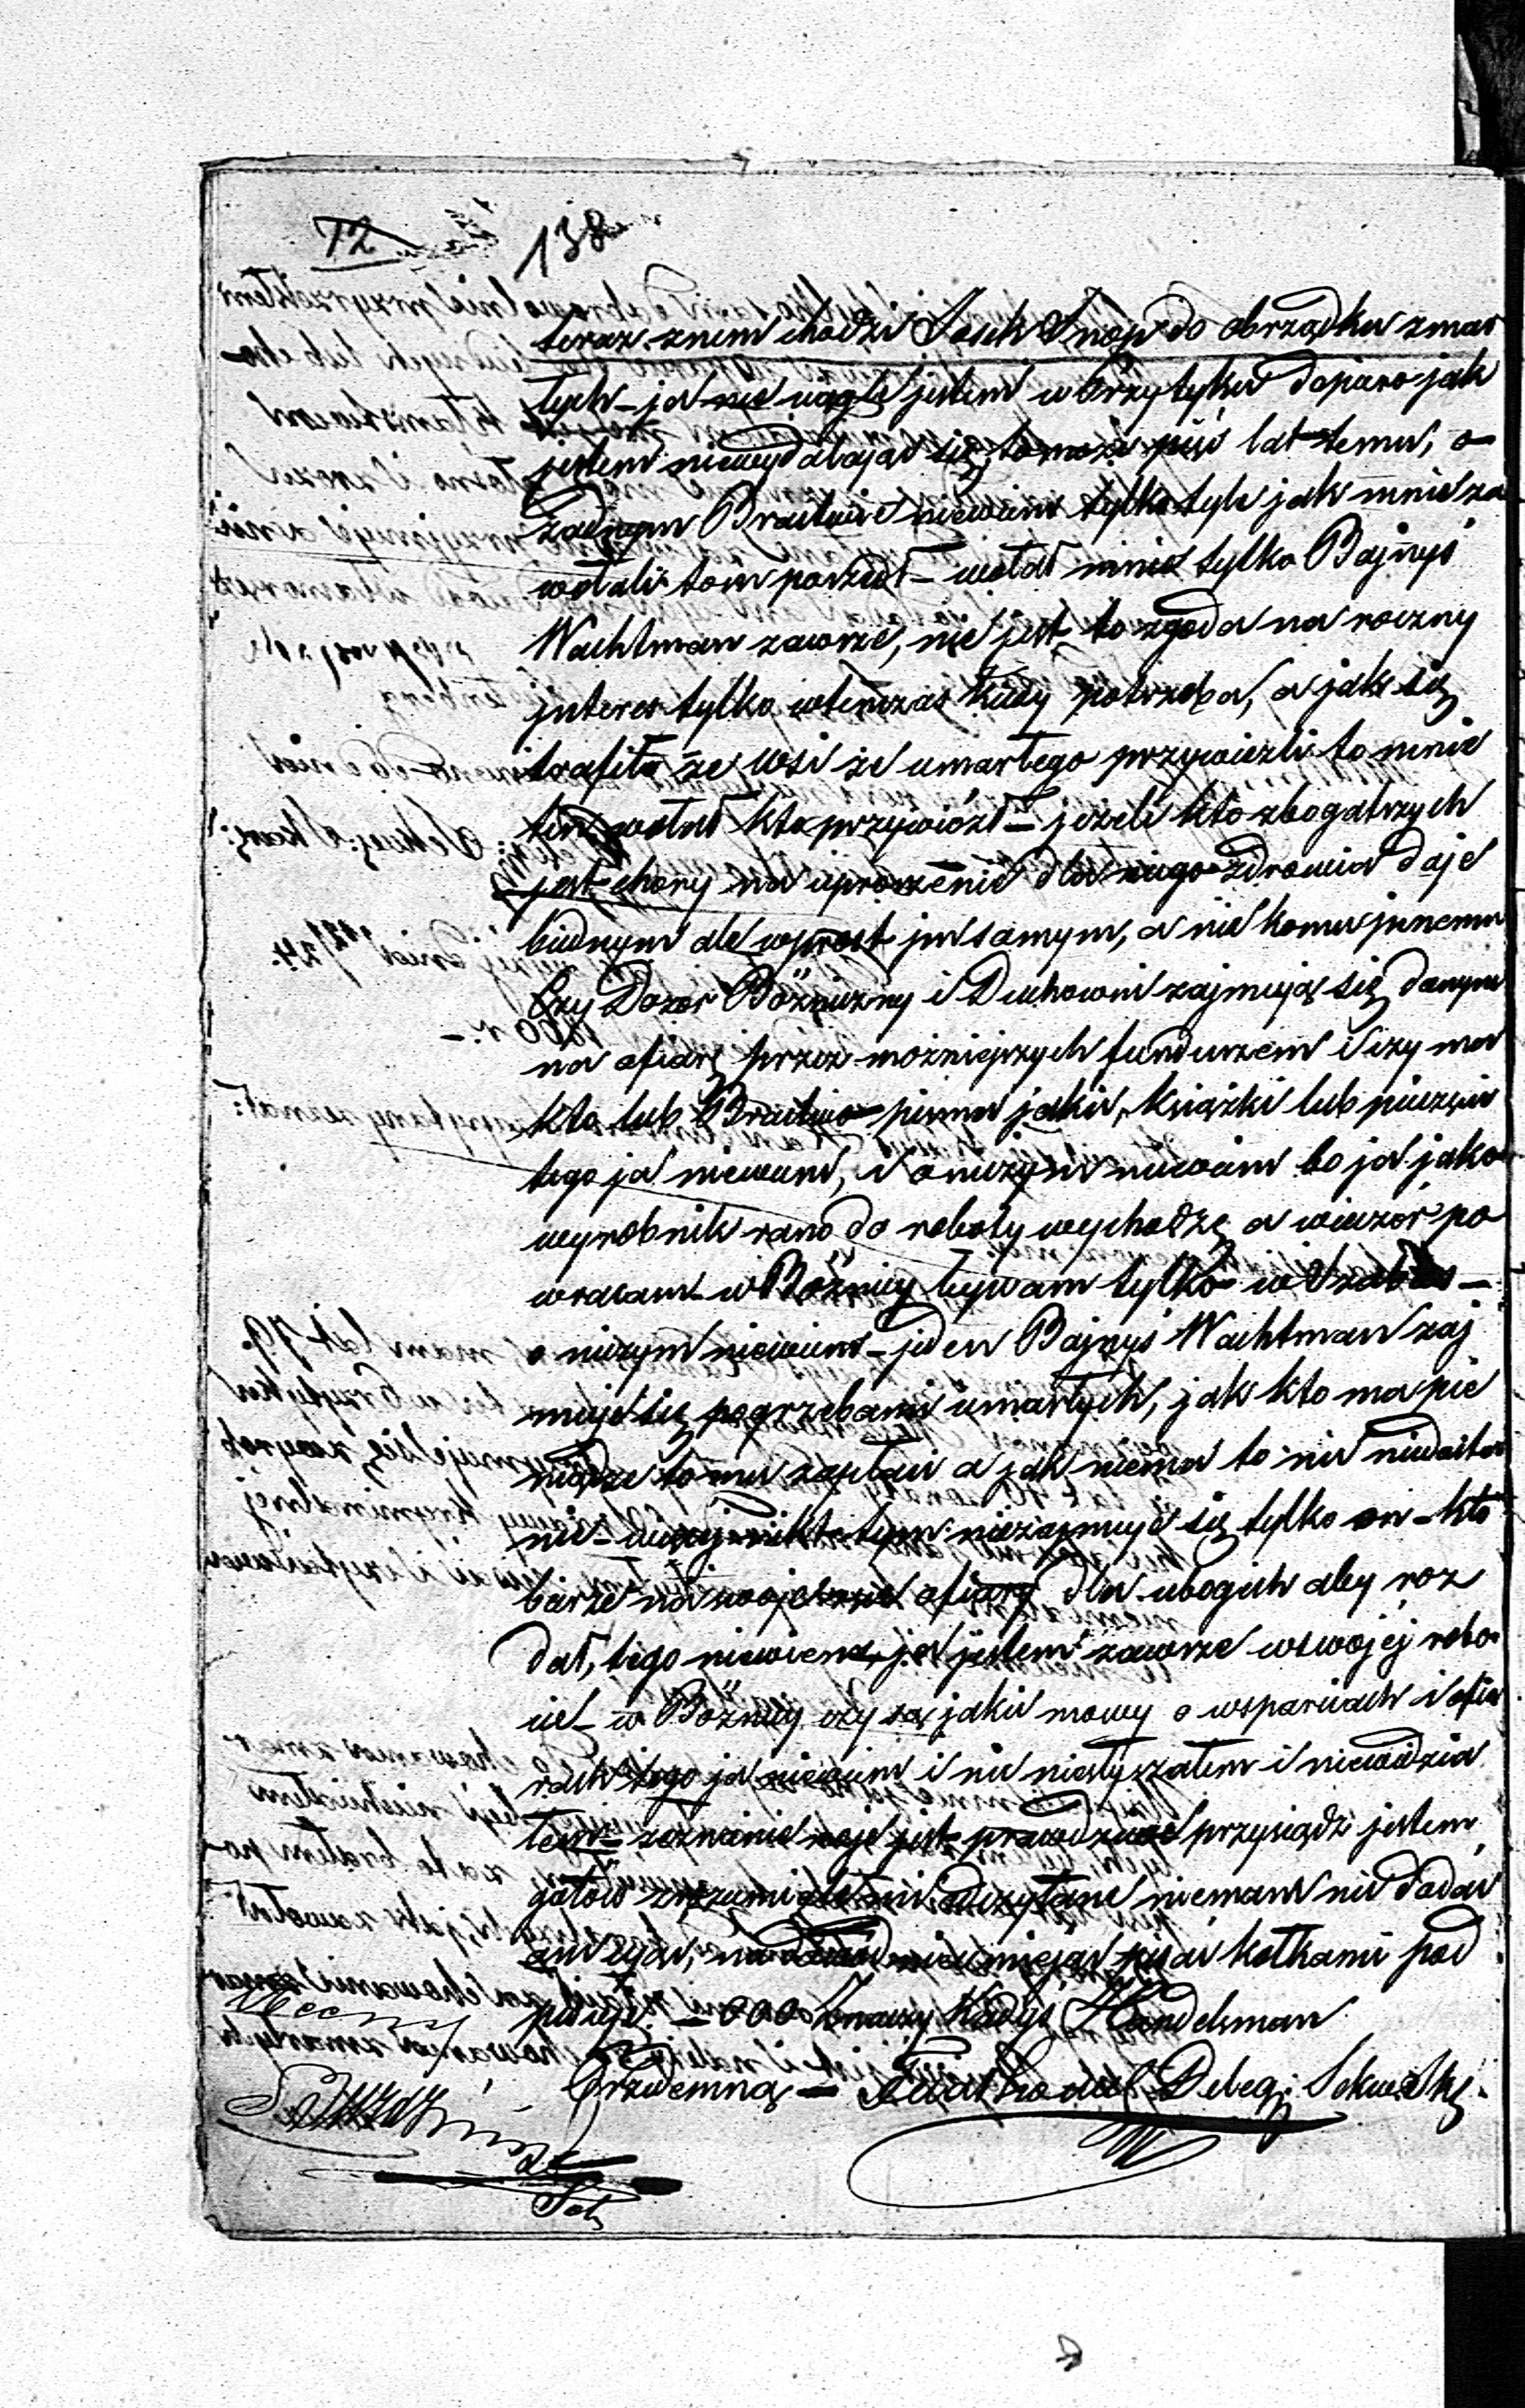 72 138
teraz znim chodzi Josek Snop do obrządku zmar
łych – ja nie ciągle jestem w Przytyku dopiero jak
jestem niewydalając się, to może pięć lat temu, o
żadnym Bractwie niewiem tylko tyle jak mnie za
wołali tom poszedł – wołał mnie tylko Bajnyś
Wachtman zawsze, nie jest to zgoda na roczny
jnteres tylko wtenczas kiedy potrzeba, a jak się
trafiło ze wsi że umarłego przywieźli to mnie
ten wołał kto przywiózł – jeżeli kto zbogatszych
jest chory na uproszenie dla niego zdrowia daje
biednym ale wprost jm samym, a nie komu jnnemu
Czy Dozór Bóżniczny i Duchowni zajmują się danym
na ofiarę przez możniejszych funduszem i czy ma
kto lub Bractwo pisma jakie, książki lub pieczęcie
tego ja niewiem, i o niczym niewiem bo ja jako
wyrobnik rano do roboty wychodzę a wieczór po
wracam – w Bóźnicy bywam tylko w Szabas –
o niczym niewiem – jeden Bajnyś Wachtman zaj
muje się pogrzebami umarłych, jak kto ma pie
niądze to mu zapłaci a jak niema to nic niedosta
nie – więcej nikt tym niezajmuje się tylko on – kto
bierze na swoje ręce ofiary dla ubogich aby roz
dał, tego niewiem, ja jestem zawsze wswojéj robo
cie – w Bóżnicy czy są jakie mowy o wsparciach i ofia
rach tego ja niewiem i nic niesłyszałem i niewidzia
łem – zeznanie moje jest prawdziwe przysiądz jestem
gotów zrozumiałem odczytane niemam nic dodać
ani ująć, na dowód nieumiejąc pisać kółkami pod
pisuję. – 000 Znaczy Kadyś Handelsman
Przedemną –
Obecny